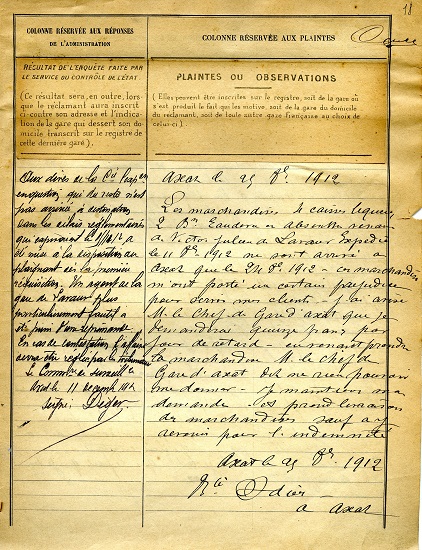 18
COLONNE RÉSERVÉE AUX RÉPONSES
DE L'ADMINISTRATION
RÉSULTAT DE L'ENQUÊTE FAITE PAR
LE SERVICE DU CONTRÔLE DE L'ÉTAT
(Ce résultat sera, en outre, lors-
que le réclamant aura inscrit
ci-contre son adresse et l'indica-
tion de la gare qui dessert son
domicile, transcrit sur le registre de
cette dernière gare).
Aux dires de la Cie
en question, qui du reste n'est
pas arrivée à destination
dans les délais réglementaires
qui expiraient le
été mis à la disposition du
plaignant à la première
réquisition. Un agent de la
gare de Lavaur plus
particulièrement fautif a
été puni d'une réprimande.
En cas de contestation l'affaire
devra être réglée par les
Le Comm. de surveill.ce
le 11 Décemb. 1912
Signé: Léger
COLONNE RÉSERVÉE AUX PLAINTES
PLAINTES OU OBSERVATIONS
(Elles peuvent être inscrites sur le registre, soit de la gare où
s'est produit le fait qui les motive, soit de la gare du domicile
du réclamant, soit de toute autre gare française au choix de
celui-ci.)
Axat le 25 8re 1912
Les marchandises 4 caisses liqueurs
2 Bns et absinthe venant
de Victor Julien de Lavaur Expédiées
le 11 8re 1912 ne sont arrivé à
Axat que le 24 8re 1912 - ces marchandises
m'ont porté un certain préjudice
pour servir mes clients - j'ai
M. le Chef de Gare d'axat que je
demanderai quinze francs par
jour de retard - en venant prendre
la marchandise M. le Chef de
Gare d'axat dit ne rien pouvoir
me donner - je maintiens ma
demande et prend livraison
de marchandises sauf a y
revenir pour l'indemnité
Axat le 25 8re 1912
Odier
a axat